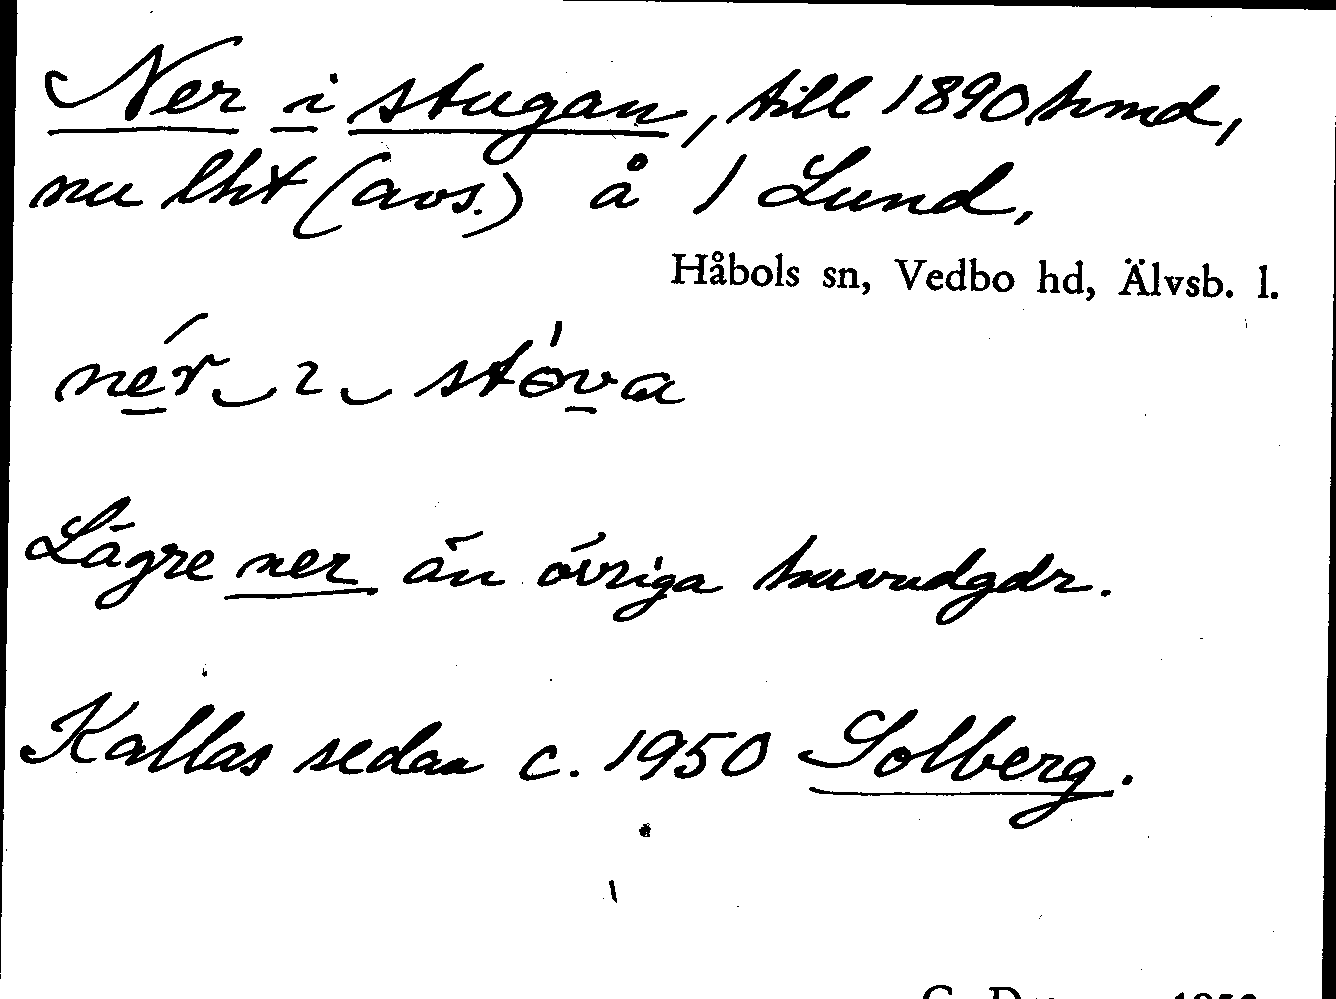 Ner i stugan, till 1890 hmd,
nu lht (avs.) å 1 Lund,
Håbols sn, Vedbo hd, Älvsb. l.
nér ‿ ı ‿ stö́va
Lägre ner än övriga huvudgdr.
Kallas sedan c. 1950 Solberg.